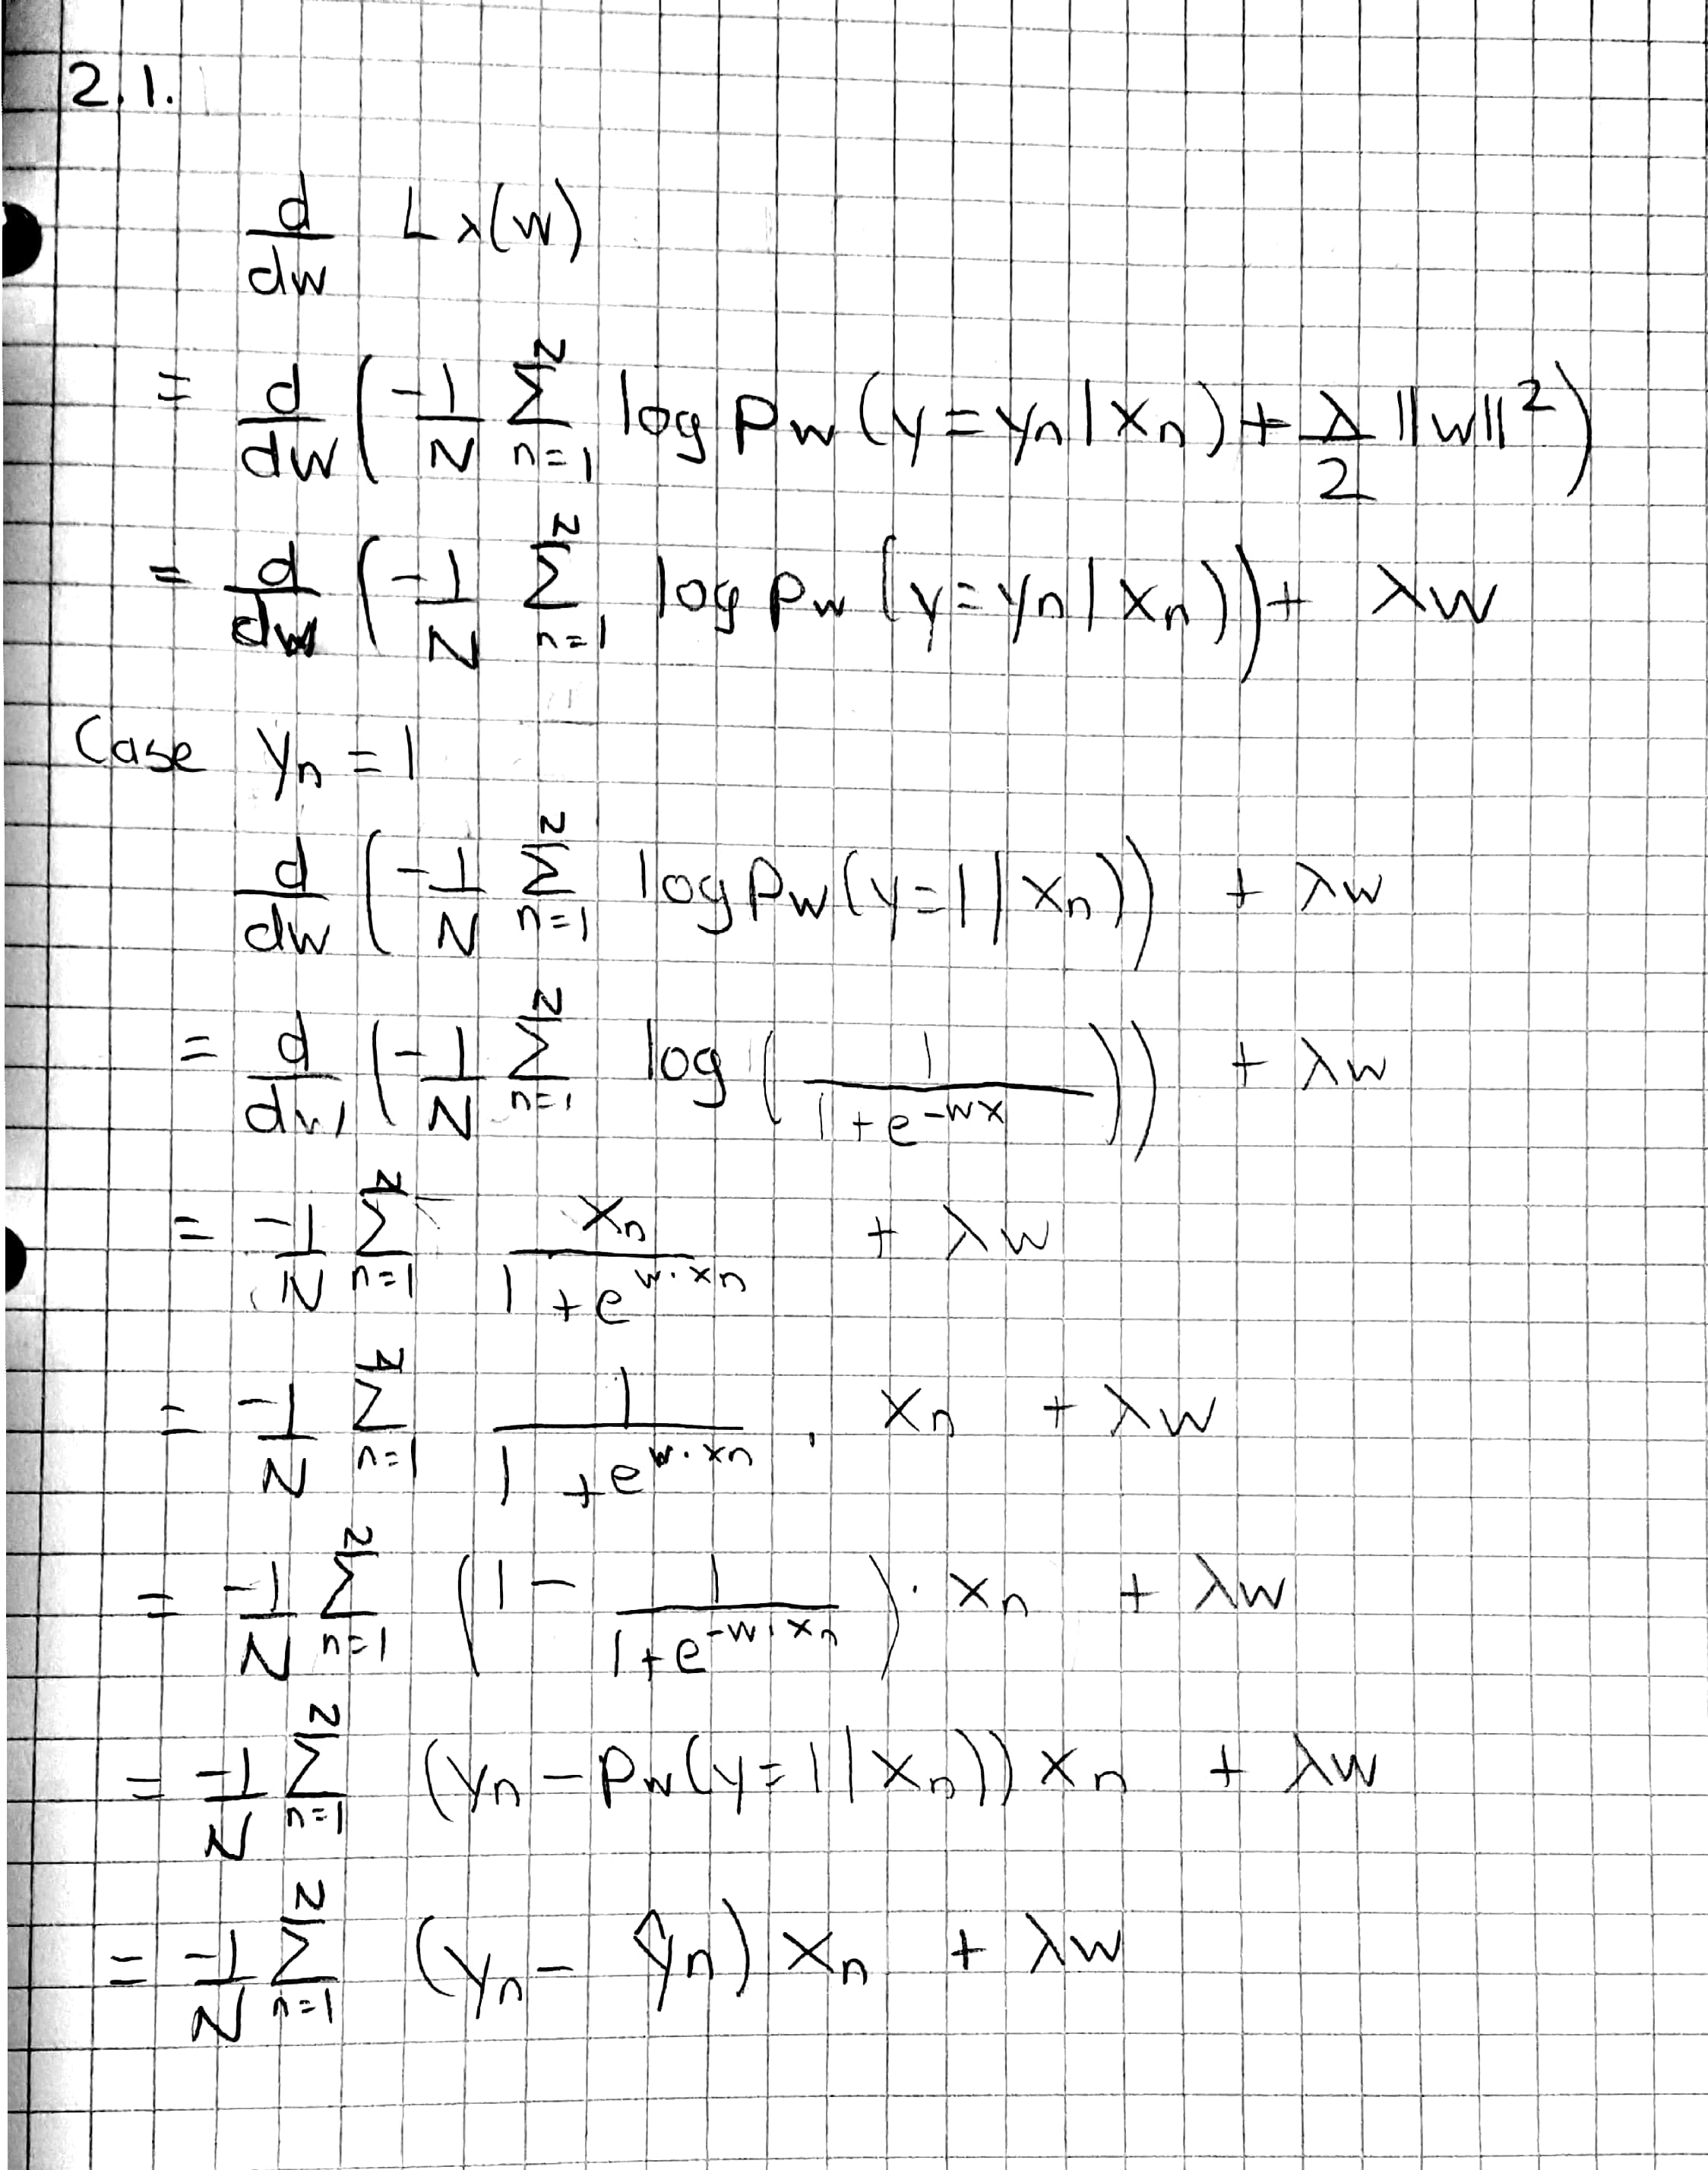 2.1.
d/dw Lλ(w)
= d/dw ( -1/N Σ_{n=1}^{N} log Pw (y = yn | xn) + λ/2 ||w||² )
= d/dw ( -1/N Σ_{n=1}^{N} log Pw (y = yn | xn) ) + λw
Case yn = 1
d/dw ( -1/N Σ_{n=1}^{N} log Pw (y = 1 | xn) ) + λw
= d/dw ( -1/N Σ_{n=1}^{N} log ( 1 / (1 + e^{-wx}) ) ) + λw
= -1/N Σ_{n=1}^{N} xn / (1 + e^{w·xn}) + λw
= -1/N Σ_{n=1}^{N} 1 / (1 + e^{w·xn}) · xn + λw
= -1/N Σ_{n=1}^{N} ( 1 - 1 / (1 + e^{-w·xn}) ) · xn + λw
= -1/N Σ_{n=1}^{N} (yn - Pw(y = 1 | xn)) xn + λw
= -1/N Σ_{n=1}^{N} (yn - ŷn) xn + λw